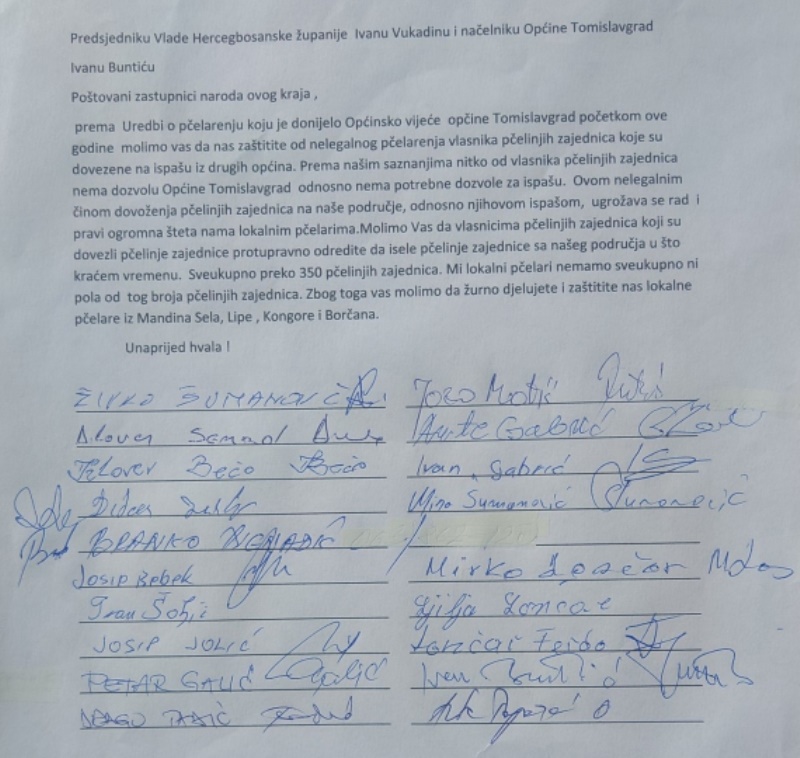 Predsjedniku Vlade Hercegbosanske županije Ivanu Vukadinu i načelniku Općine Tomislavgrad
Ivanu Buntiću
Poštovani zastupnici naroda ovog kraja ,
prema Uredbi o pčelarenju koju je donijelo Općinsko vijeće opčine Tomislavgrad početkom ove
godine molimo vas da nas zaštitite od nelegalnog pčelarenja vlasnika pčelinjih zajednica koje su
dovezene na ispašu iz drugih općina. Prema našim saznanjima nitko od vlasnika pčelinjih zajednica
nema dozvolu Općine Tomislavgrad odnosno nema potrebne dozvole za ispašu. Ovom nelegalnim
činom dovoženja pčelinjih zajednica na naše područje, odnosno njihovom ispašom, ugrožava se rad i
pravi ogromna šteta nama lokalnim pčelarima.Molimo Vas da vlasnicima pčelinjih zajednica koji su
dovezli pčelinje zajednice protupravno odredite da isele pčelinje zajednice sa našeg područja u što
kraćem vremenu. Sveukupno preko 350 pčelinjih zajednica. Mi lokalni pčelari nemamo sveukupno ni
pola od tog broja pčelinjih zajednica. Zbog toga vas molimo da žurno djelujete i zaštitite nas lokalne
pčelare iz Mandina Sela, Lipe , Kongore i Borčana.
Unaprijed hvala !
ŽIVKO ŠUMANOVIĆ
Ante Gabrić
Bećo Ivan Gabrić
Miro Šumanović
BRANKO
JOSIP Bebek Mirko Lončar
Ivan Šoljić Ljilja Lončar
JOSIP JOLIĆ Lončar
PETAR GALIĆ Ivan
DRAGO TADIĆ